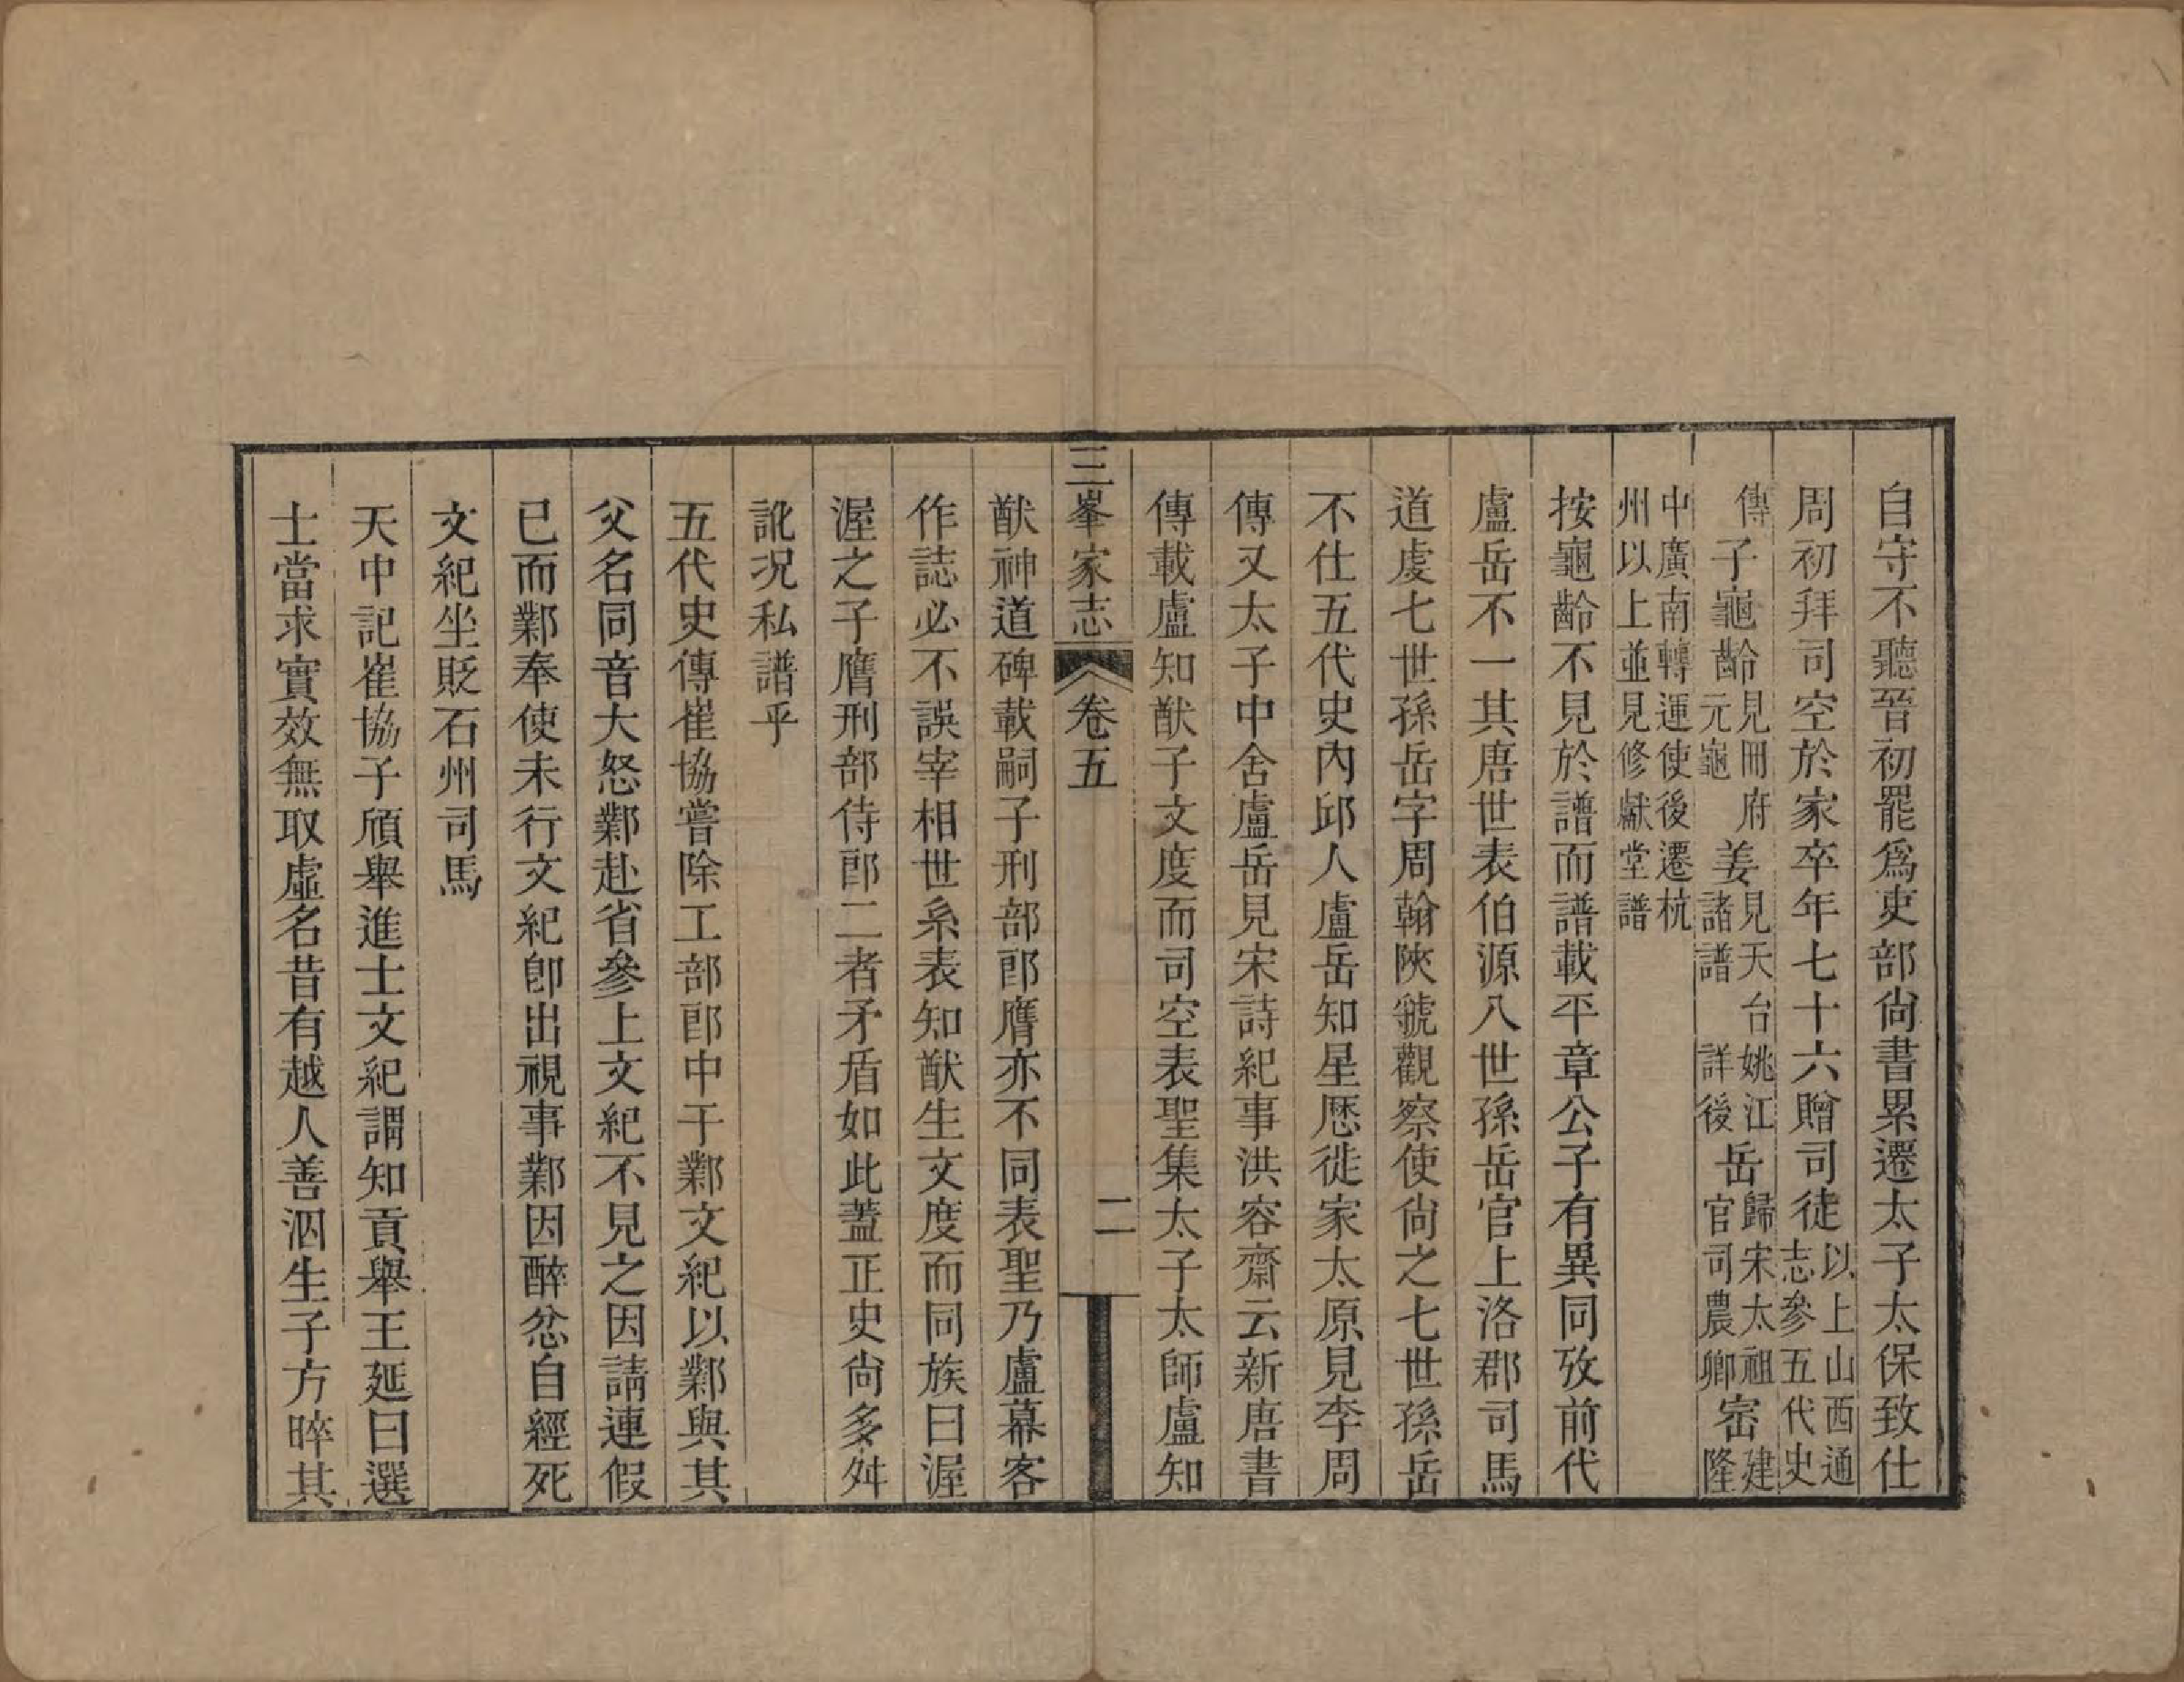 自守不聽晉初罷爲吏部尚書累遷太子太保致仕
周初拜司空於家卒年七十六贈司徒以上山西通志參五代史
傳子龜齡見冊府元龜姜見天台諸譜姚江詳後岳歸宋太祖官司農卿密建隆
中廣南轉運使後遷杭州以上並見修獻堂譜
按龜齡不見於譜而譜載平章公子有異同攷前代
盧岳不一其唐世表伯源八世孫岳官上洛郡司馬
道虔七世孫岳字周翰陝虢觀察使尚之七世孫岳
不仕五代史內邱人盧岳知星厯徙家太原見李周
傳又太子中舍盧岳見宋詩紀事洪容齋云新唐書
傳載盧知猷子文度而司空表聖集太子太師盧知
三峯家志 卷五 二
猷神道碑載嗣子刑部郎膺亦不同表聖乃盧幕客
作誌必不誤宰相世系表知猷生文度而同族曰渥
渥之子膺刑部侍郎二者矛盾如此蓋正史尚多舛
訛況私譜乎
五代史傳崔協嘗除工部郎中于鄴文紀以鄴與其
父名同音大怒鄴赴省參上文紀不見之因請連假
已而鄴奉使未行文紀卽出視事鄴因醉忿自經死
文紀坐貶石州司馬
天中記崔協子頎舉進士文紀謂知貢舉王延曰選
士當求實效無取虛名昔有越人善泅生子方晬其